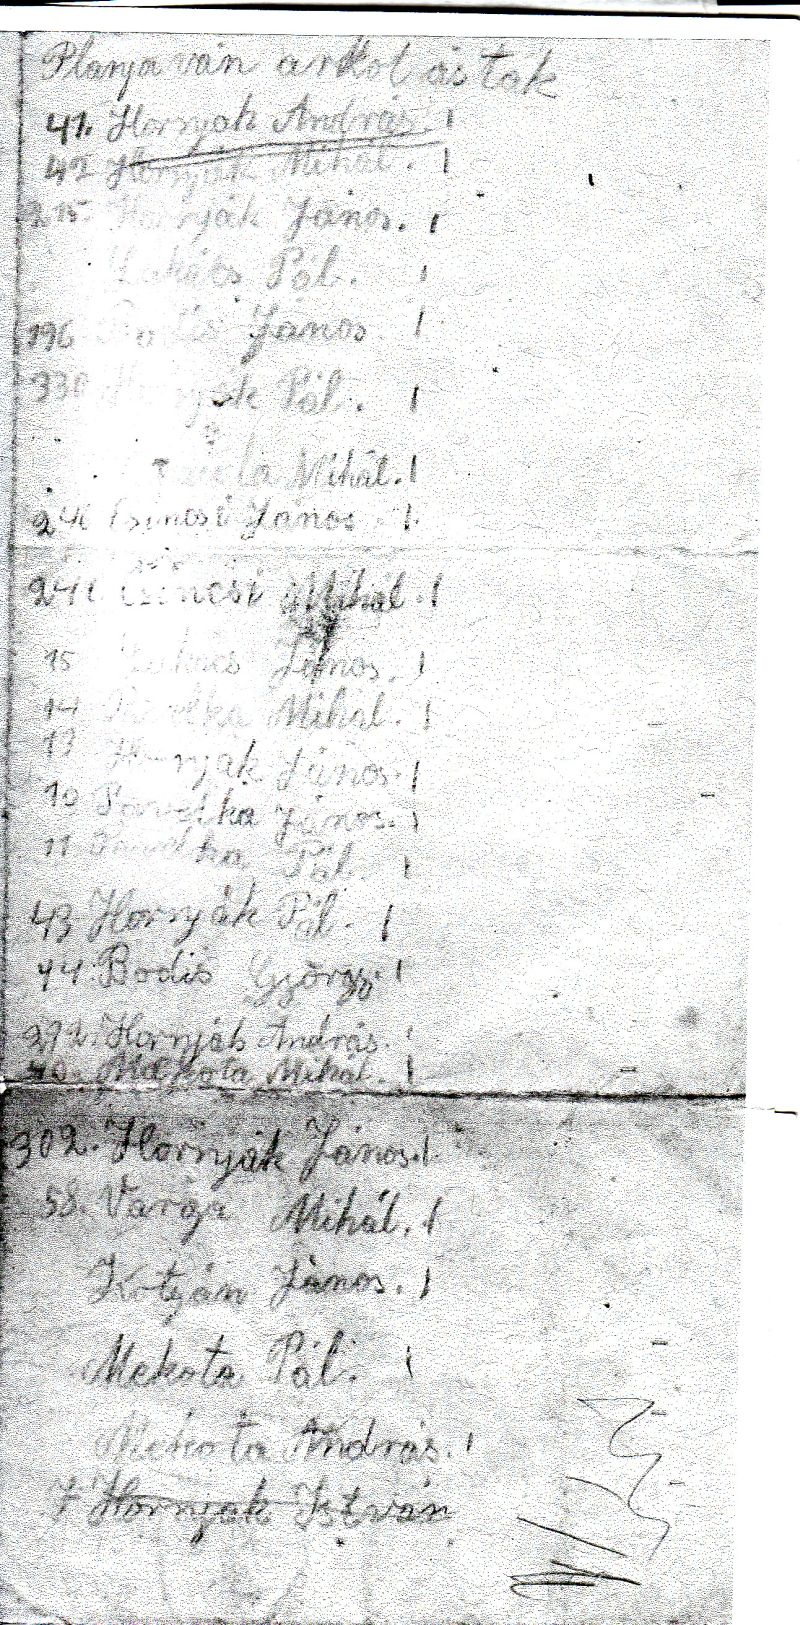 Planyaván arkot ástak
41. Hornyák András. |
42 Hornyák Mihál. |
215. Hornyák János. |
Pál. |
196 János |
330 Pál. |
Mihál. |
240 Csincsi János. |
241 Csincsi Mihál. |
15 János. |
14 Mihál. |
13 Hornyak János. |
10 Pavelka János. |
11 Pavelka Pál. |
43 Hornyák Pál. |
44. Bodis György. |
Hornyák András. |
Mekota Mihál. |
302. Hornyák János. |
58. Varga Mihál. |
Kotyán János. |
Mekota Pál. |
Mekota András. |
Hornyak István